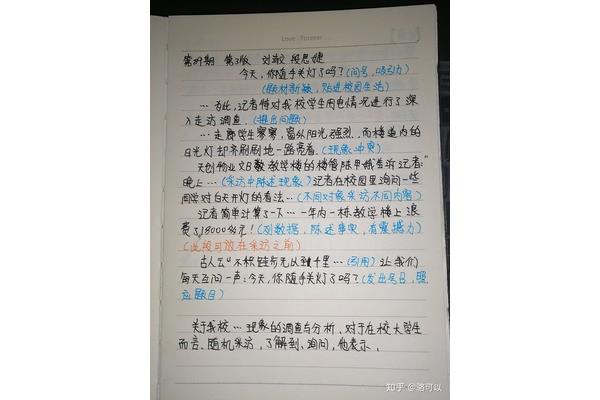 Love Forever
第39期 第3版 刘 段思婕
今天,你随手关灯了吗?(问号,吸引力)
(题材新颖,贴近校园生活)
…为此,记者特对我校学生用电情况进行了深
入走访调查.(提出问题)
…走廊学生寥寥,窗外阳光强烈.而楼道内的
日光灯却齐刷刷地一路亮着.(现象冲突)
天创物业文B教学楼的楼管陈甲娥告诉记者:“
晚上…(采访中陈述现象)记者在校园里询问一些
同学对白天开灯的看法…(不同对象采访不同内容)
记者简单计算了一下…一年内一栋教学楼上浪
费了18000多元!(列数据,陈述事实,有震撼力)
(此段可放在采访之前)
古人云“不积跬步无以致千里…(引用)让我们
每天互问一声:今天,你随手关灯了吗?(发出号召,照
应题目)
关于我校…现象的调查与分析、对于在校大学生
而言、随机采访,了解到、询问,他表示,
知乎 @骆可以